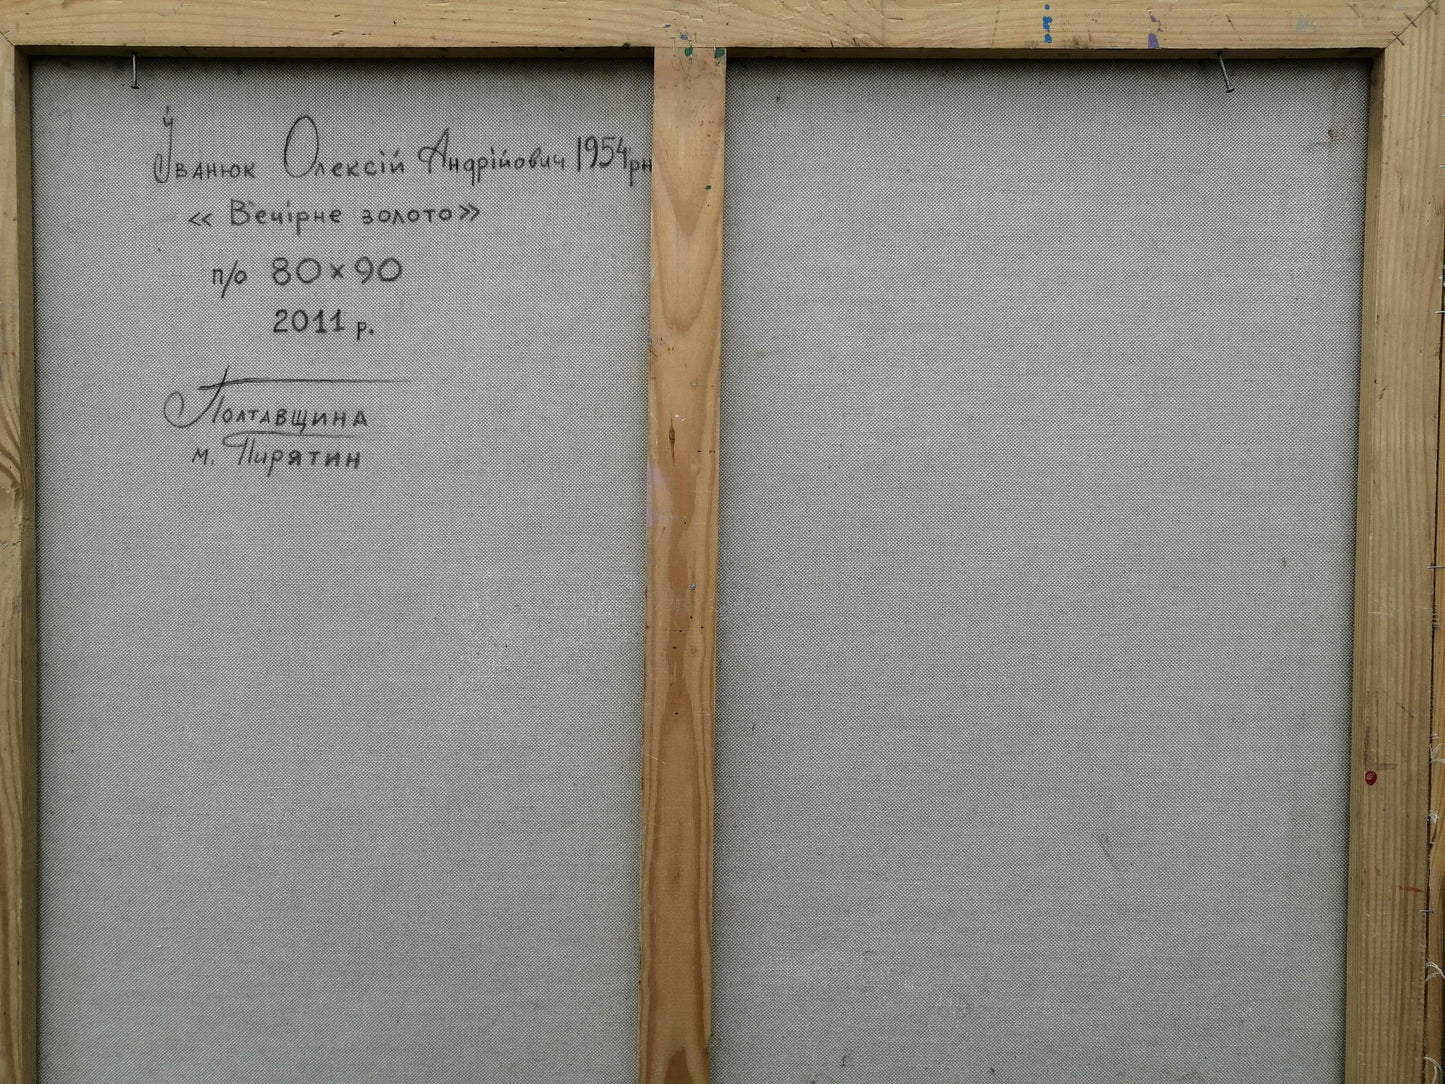 Іванюк Олексій Андрійович 1954рн
« Вечірне золото»
п/о 80×90
2011 р.
Полтавщина
м. Пирятин